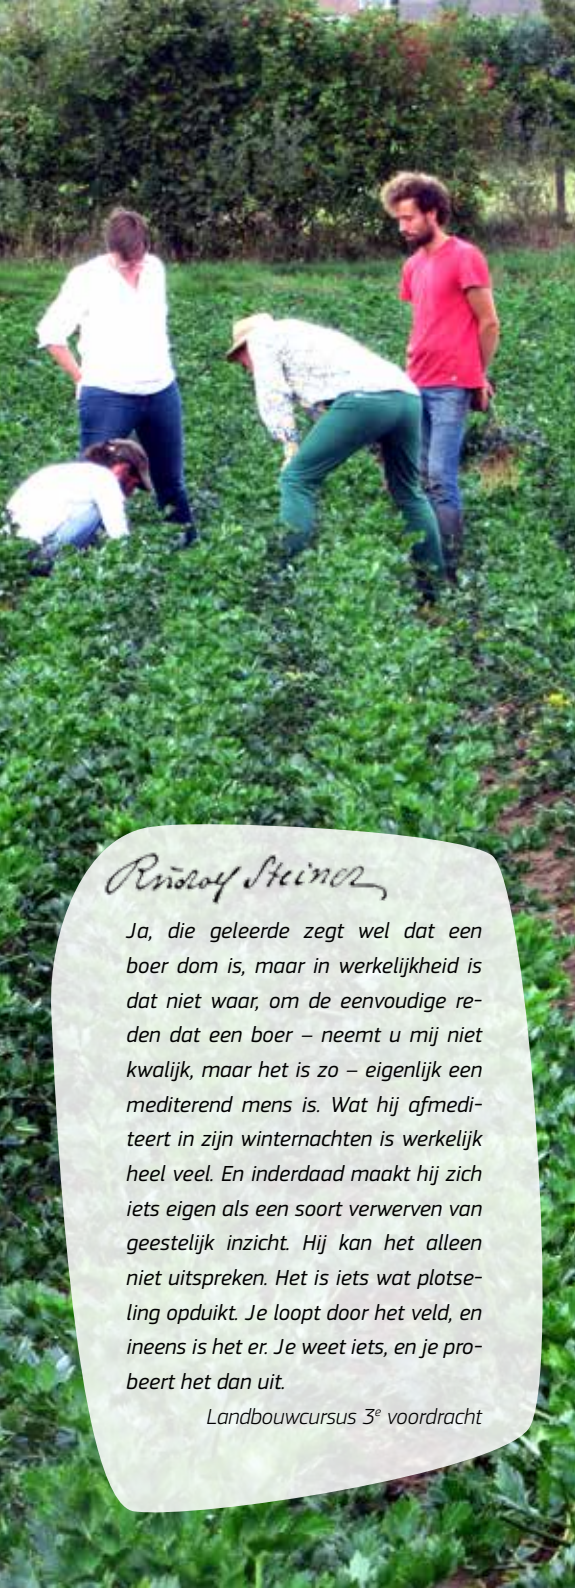 Rudolf Steiner
Ja, die geleerde zegt wel dat een
boer dom is, maar in werkelijkheid is
dat niet waar, om de eenvoudige re-
den dat een boer – neemt u mij niet
kwalijk, maar het is zo – eigenlijk een
mediterend mens is. Wat hij afmedi-
teert in zijn winternachten is werkelijk
heel veel. En inderdaad maakt hij zich
iets eigen als een soort verwerven van
geestelijk inzicht. Hij kan het alleen
niet uitspreken. Het is iets wat plotse-
ling opduikt. Je loopt door het veld, en
ineens is het er. Je weet iets, en je pro-
beert het dan uit.
Landbouwcursus 3e voordracht